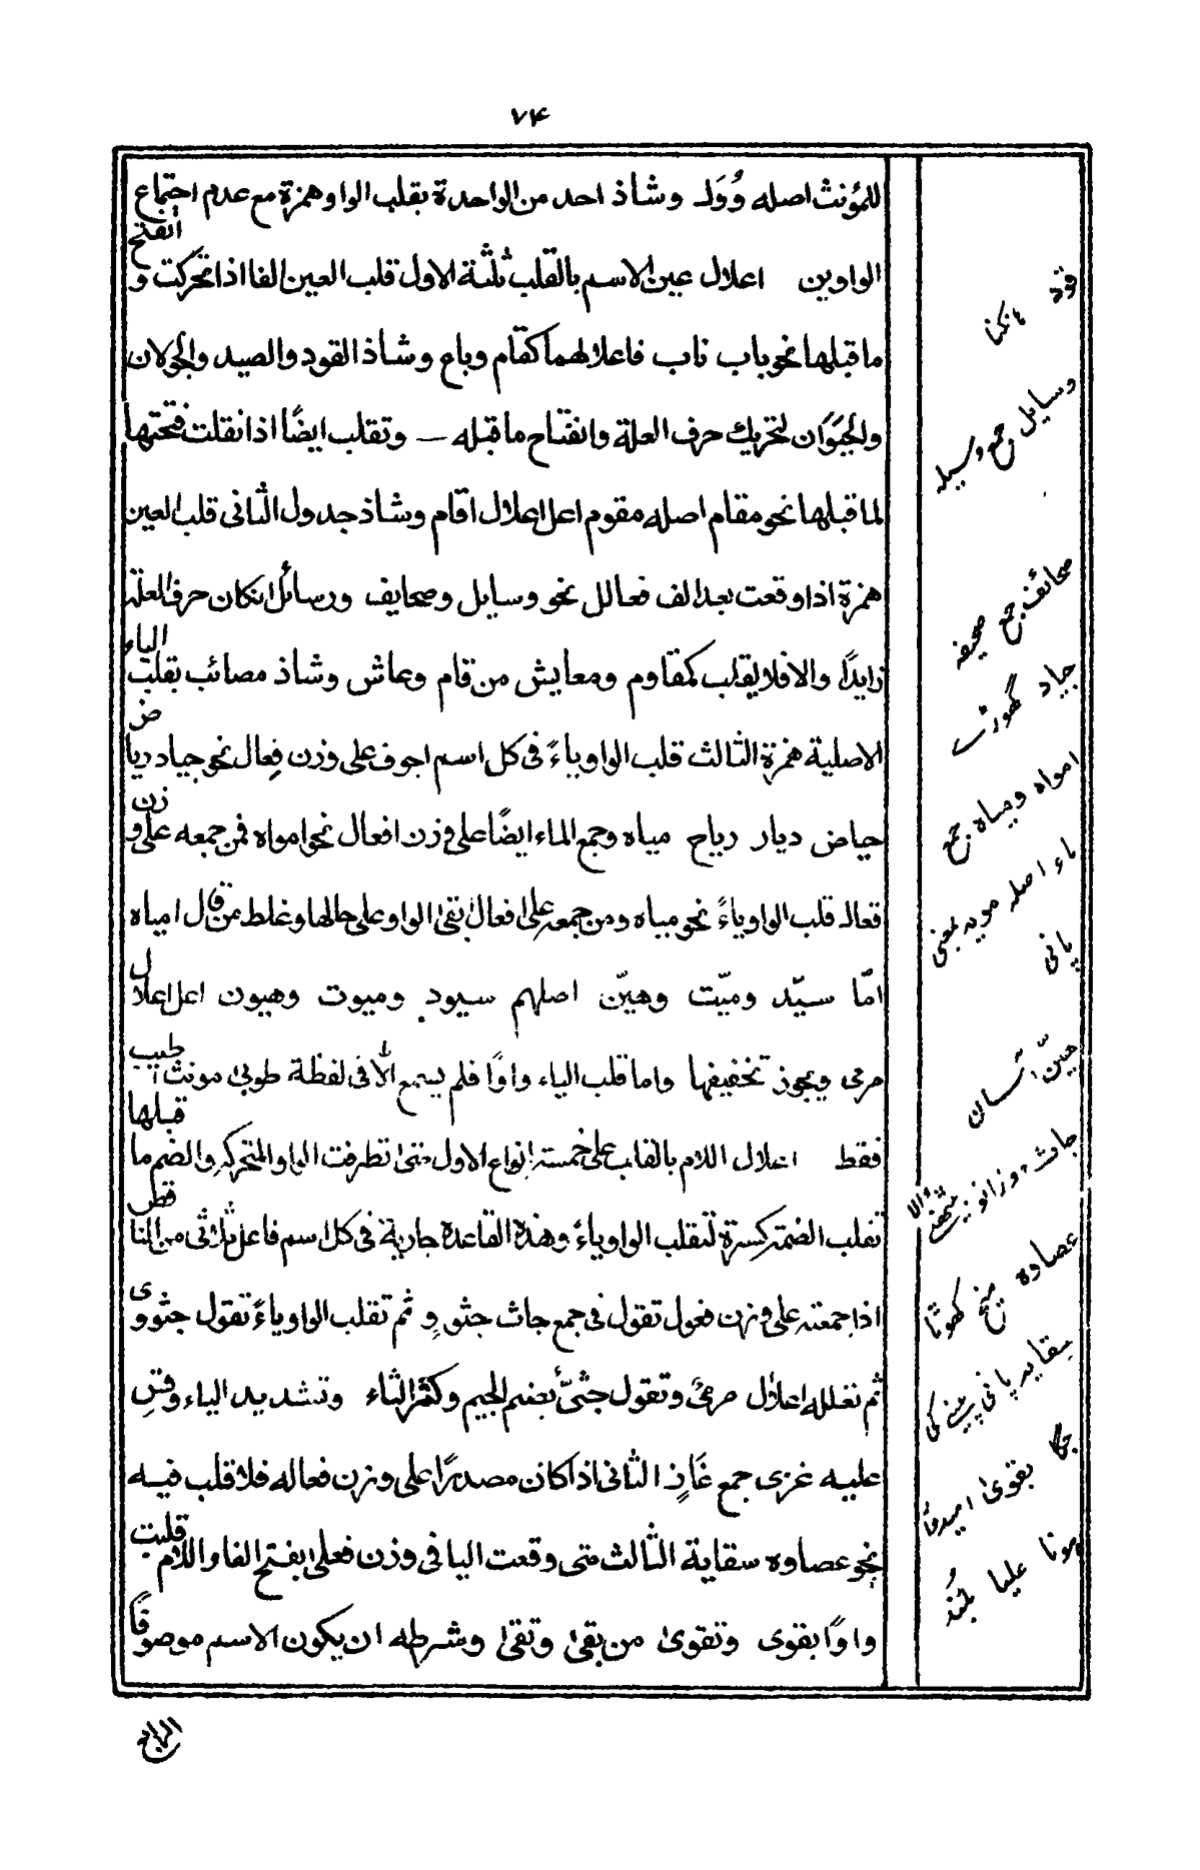 ۷۴
للمؤنث اصله وُوَلـ وشاذ احد من الواحدة بقلب الواو همزة مع عدم اجتماع
الواوين اعلال عين الاسم بالقلب ثلثة الاول قلب العين الفا اذا تحركت و انفتح
ما قبلها نحو باب ناب فاعلالهما كقام وباع وشاذ القود والصيد والجولان
والحَيَوَان لتحريك حرف العلة وانفتاح ما قبله — وتقلب ايضًا اذا نقلت فتحتها
لما قبلها نحو مقام اصله مقوم اعل اعلال اقام وشاذ جدول الثانى قلب العين
همزة اذا وقعت بعد الف فعالل نحو وسايل وصحايف ورسائل انكان حرف العلة
زايدًا والا فلا يقلب كمقاوم ومعايش من قام وعاش وشاذ مصائب بقلب الياء
الاصلية همزة الثالث قلب الواو ياءً فى كل اسم اجوف على وزن فِعال نحو جياد رياض
حياض ديار رياح مياه وجمع الماء ايضًا على وزن افعال نحو امواه فمن جمعه على وزن
فعالـ قلب الواو ياءً نحو مياه ومن جمعه على افعال بقى الواو على حالها وغلط من قال امياه
امّا سيّد وميّت وهيّن اصلهم سيود وميوت وهيون اعل اعلال
مرمى ويجوز تخفيفها واما قلب الياء واوًا فلم يسمع الا فى لفظة طوبى مونث اطيب
فقط اعلال اللام بالقلب على خمسة انواع الاول متى تطرفت الواو المتحركة والضم ما قبلها
تقلب الضمة كسرة لتقلب الواو ياءً وهذه القاعدة جارية فى كل اسم فاعل ثلاثى من الناقص
اذا جمعته على وزن فعول تقول فى جمع جاث جثوو ثم تقلب الواو ياءً تقول جثووى
ثم تعلله اعلال مرمى وتقول جثىّ بضم الجيم وكسر الثاء وتشديد الياء وقس
عليه غزى جمع غَازٍ الثانى اذا كان مصدرًا على وزن فعاله فلا قلب فيه
نحو عصاوه سقاية الثالث متى وقعت اليا فى وزن فعلى بفتح الفا واللام قلبت
واوًا بقوى وتقوى من بقى وتقى وشرطه ان يكون الاسم موصوفًا
قود هانكنا
وسايل جمع وسيله
صحائف جمع صحيفه
جياد گهوڑے
امواه ومياه جمع
ماء اصله مويه بمعنى
پانى
هيّن آسان
جاث دوزانو بيٹهنے والا
عصاوه
سقايه پانى پينے كى
جگه بقوى اميدوار
هونا عليا بلند
الرابع